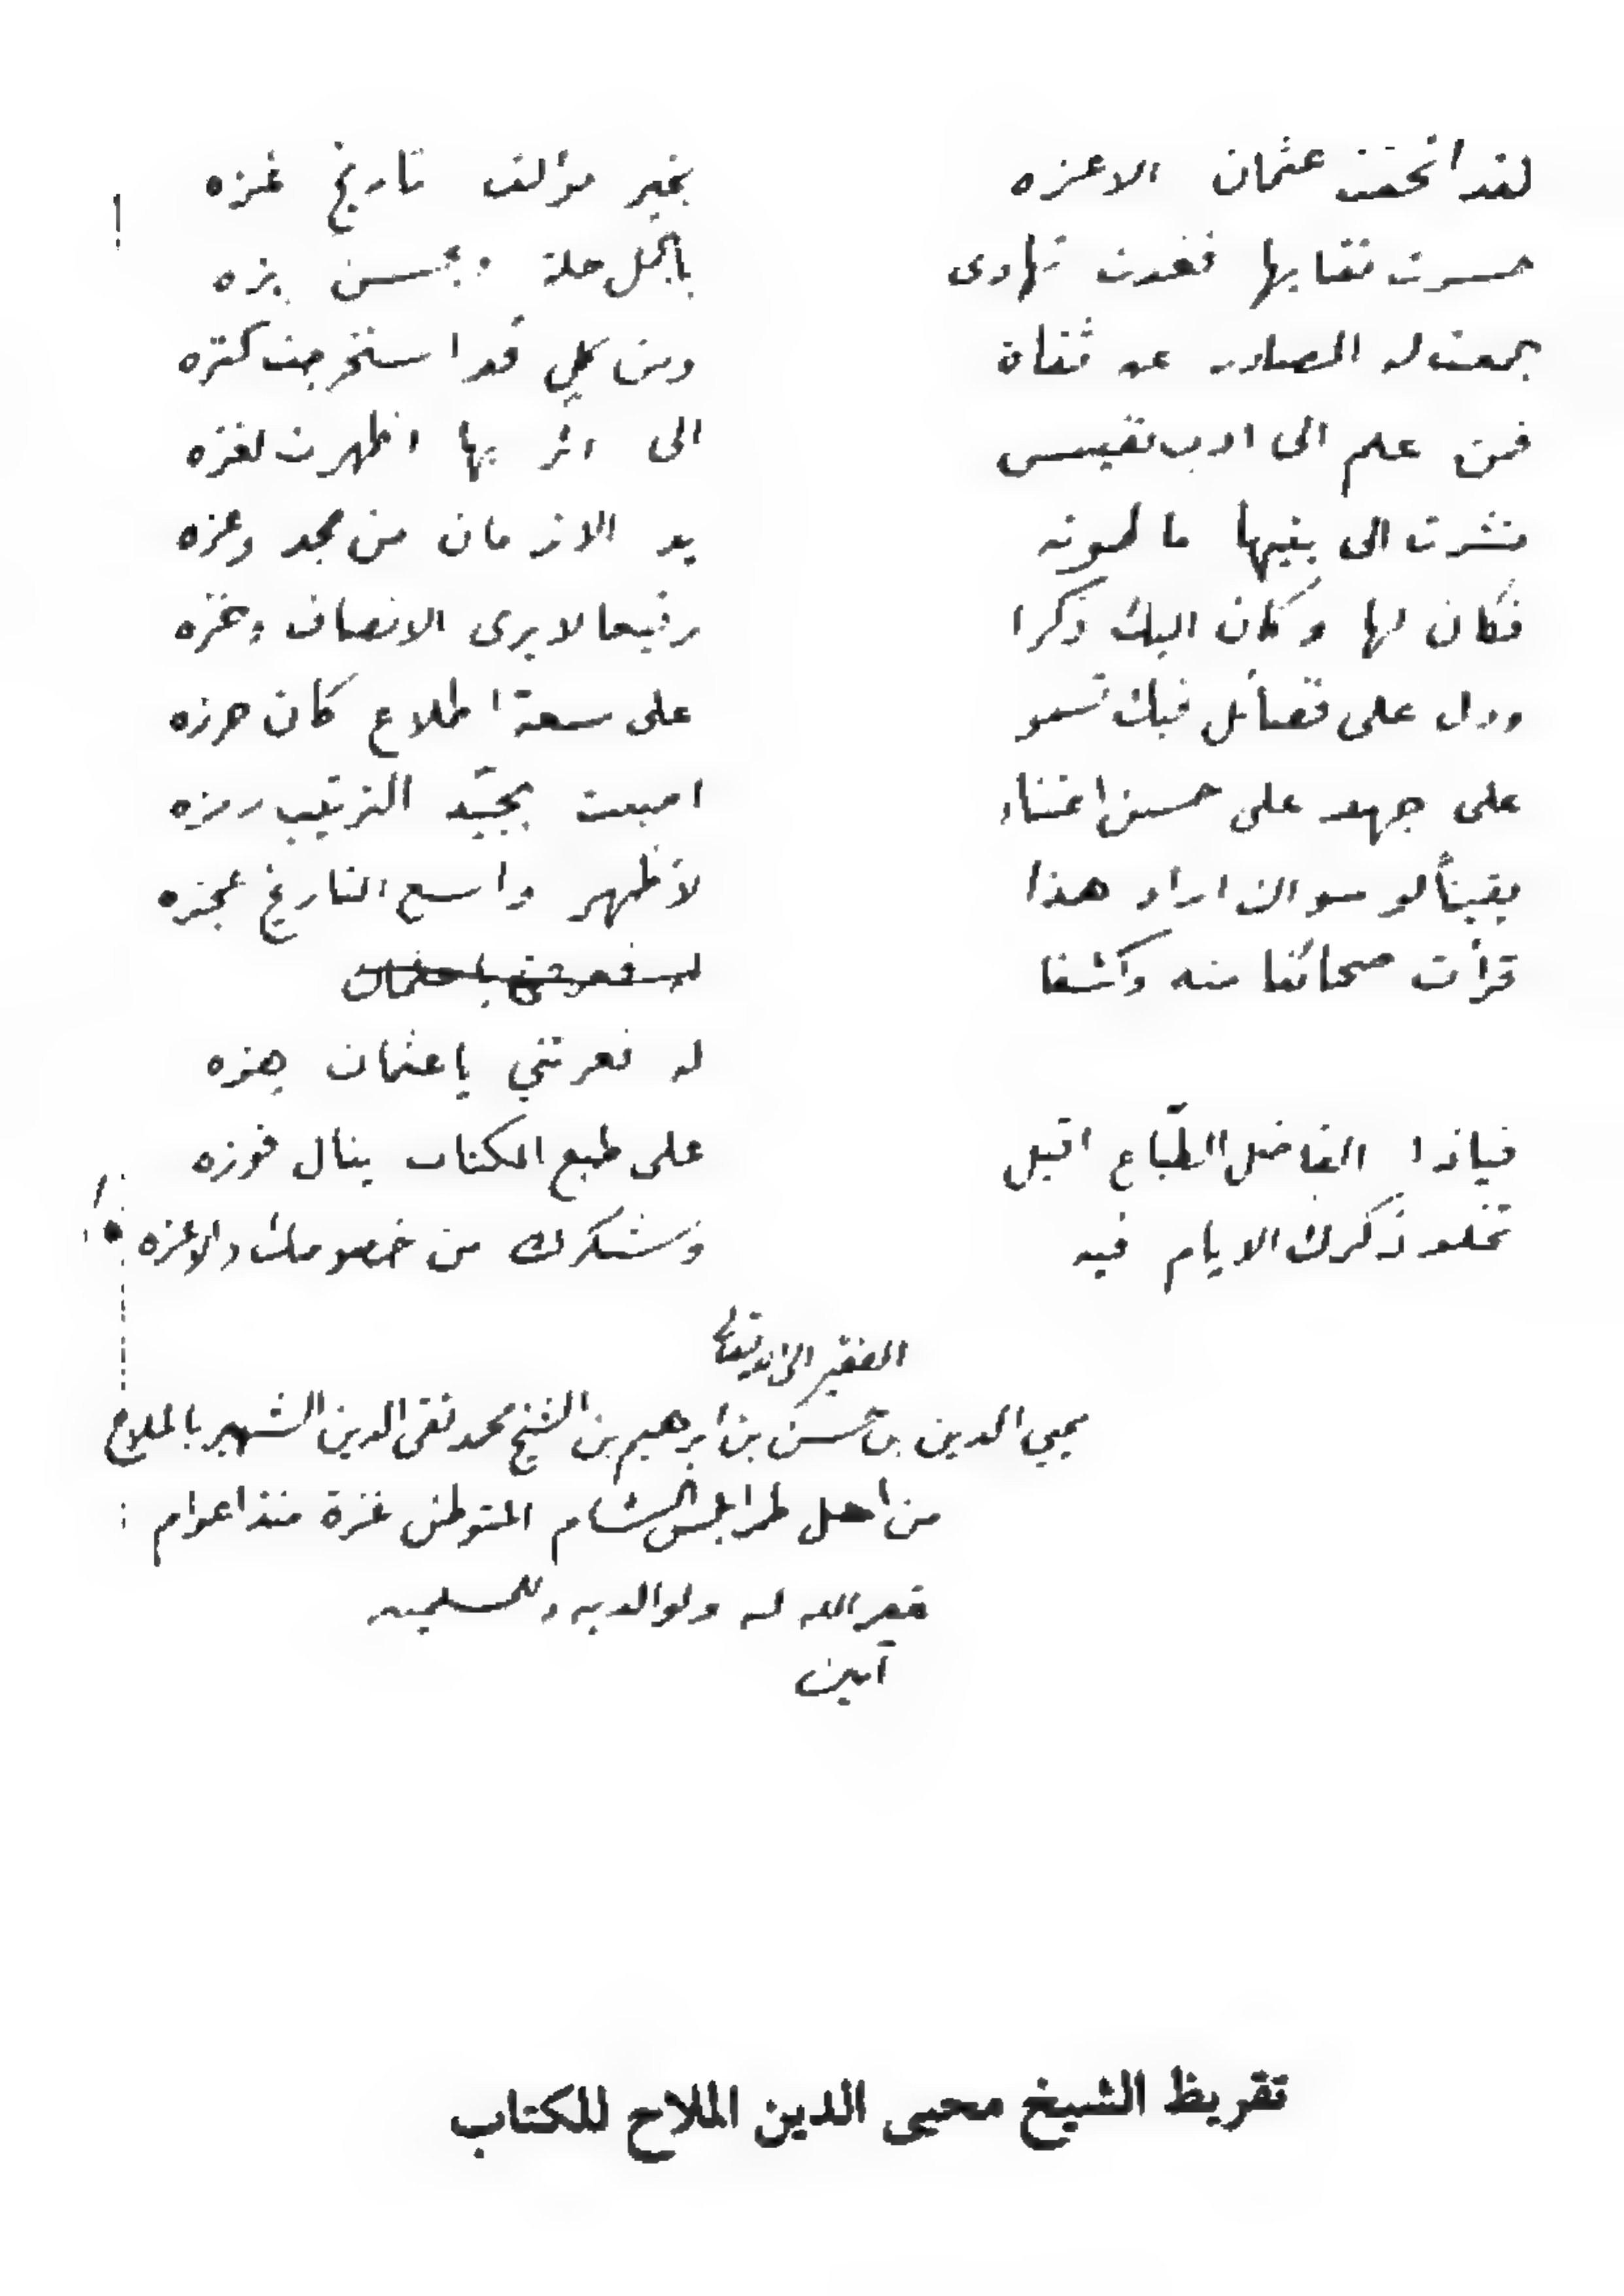 لقد اتحفت عثمان الاعزه بخير مؤلف تاريخ غزه
حسرت نقابها فغدت تهادى باجمل حلة وبحسن بزه
جمعت له المصادر عن ثقاة ومن كل قد استخرجت كنزه
فمن علم الى ادب نفيس الى اثر بها اظهرت لغزه
نشرت الى بنيها ما طوته يد الازمان من مجد وعزه
فكان لها وكان اليك ذكرا رفيعا لا يرى الانصاف وخزه
ودل على فضائل فيك تسمو على سعة اطلاع كان حرزه
على جهد على حسن اعتناء اصبت بجيّد الترتيب رمزه
يقيناً لو سواك اراد هذا لأظهر واسع التاريخ عجزه
قرأت صحائفا منه وكشفا
له فعرتني يا عثمان هزه
فياذا الفاضل الطبّاع اقبل على طبع الكتاب ينال فوزه
تخلد ذكرك الايام فيه وتشكرك من خصومك والاعزه
الفقير الى الله تعالى
محيي الدين بن حسن بن ابرهيم بن الشيخ محمد تقي الدين الشهير بالملاح
من اهل طرابلس الشام المتوطن غزة منذ اعوام :
غفر الله له ولوالديه وللمسلمين
آمين
تقريظ الشيخ محيى الدين الملاح للكتاب